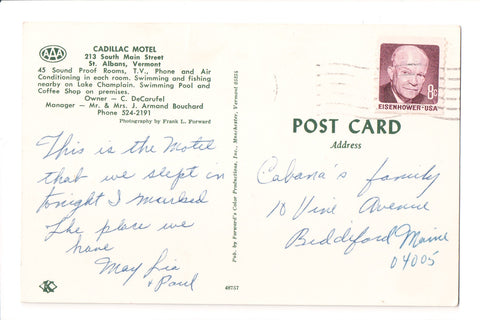 AAA
CADILLAC MOTEL
213 South Main Street
St. Albans, Vermont
45 Sound Proof Rooms, T.V., Phone and Air
Conditioning in each room. Swimming and fishing
nearby on Lake Champlain. Swimming Pool and
Coffee Shop on premises.
Owner — C. DeCarufel
Manager — Mr. & Mrs. J. Armand Bouchard
Phone 524-2191
Photography by Frank L. Forward
This is the Motel
that we slept in
tonight I marked
the place we
have
May Lia
& Paul
Pub. by Forward's Color Productions, Inc., Manchester, Vermont 05255
48757
K
8c
EISENHOWER·USA
POST CARD
Address
Cabana's family
10 Vine Avenue
Biddeford Maine
04005